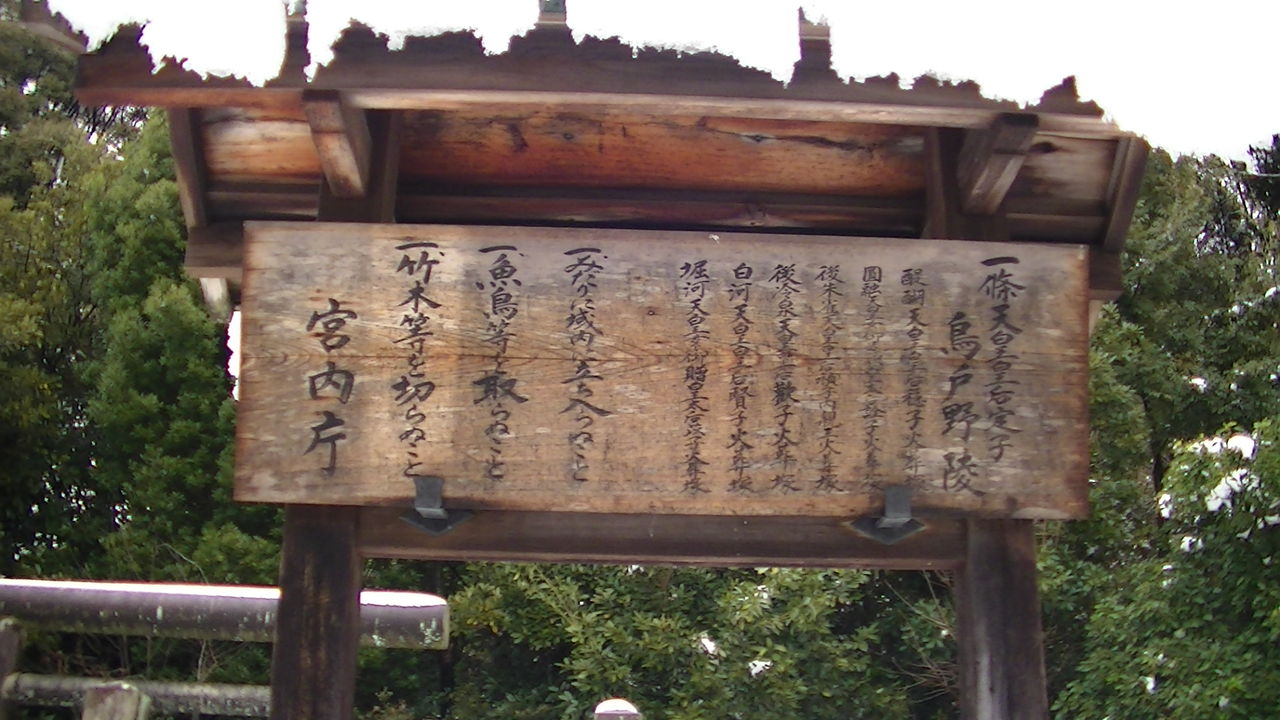 一條天皇皇后定子
鳥戸野陵
醍醐天皇皇后穏子火葬塚
圓融天皇女御 詮子火葬塚
後朱雀天皇皇后禎子内親王火葬塚
後冷泉天皇皇后歡子火葬塚
白河天皇皇后賢子火葬塚
堀河天皇女御贈皇太后苡子火葬塚
一、みだりに域内に立ち入らぬこと
一、魚鳥等を取らぬこと
一、竹木等を切らぬこと
宮内庁